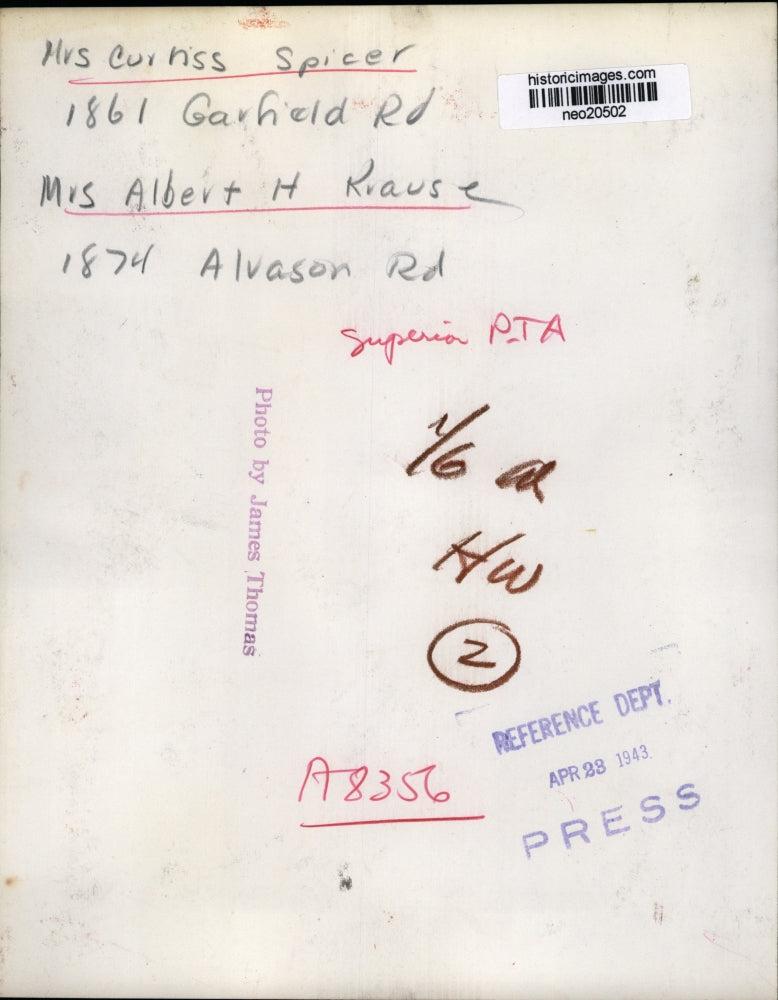 Mrs Curtiss Spicer
historicimages.com
neo20502
1861 Garfield Rd
Mrs Albert H Krause
1874 Alvason Rd
Superior P-TA
Photo by James Thomas
1/6
HW
2
REFERENCE DEPT.
APR 23 1943
PRESS
A8356